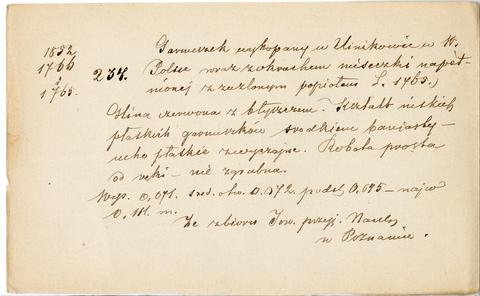 1852
1766
i
1765.
237. Garnuszek wykopany w Unikowie w W.
Polsce wraz z okruchem miseczki napeł-
nionej z zielonym popiołem L. 1765.)
Glina czerwona z błyszczem. Kształt niskich
płaskich garnuszków środkiem baniasty –
ucho płaskie zwyczajne. Robota prosta
od ręki – nie zgrabna.
Wys. 0,071. śred. otw. 0,072. podst. 0,045 – najw
0,111. m.
Ze zbioru Tow. przyj. Nauk
w Poznaniu.